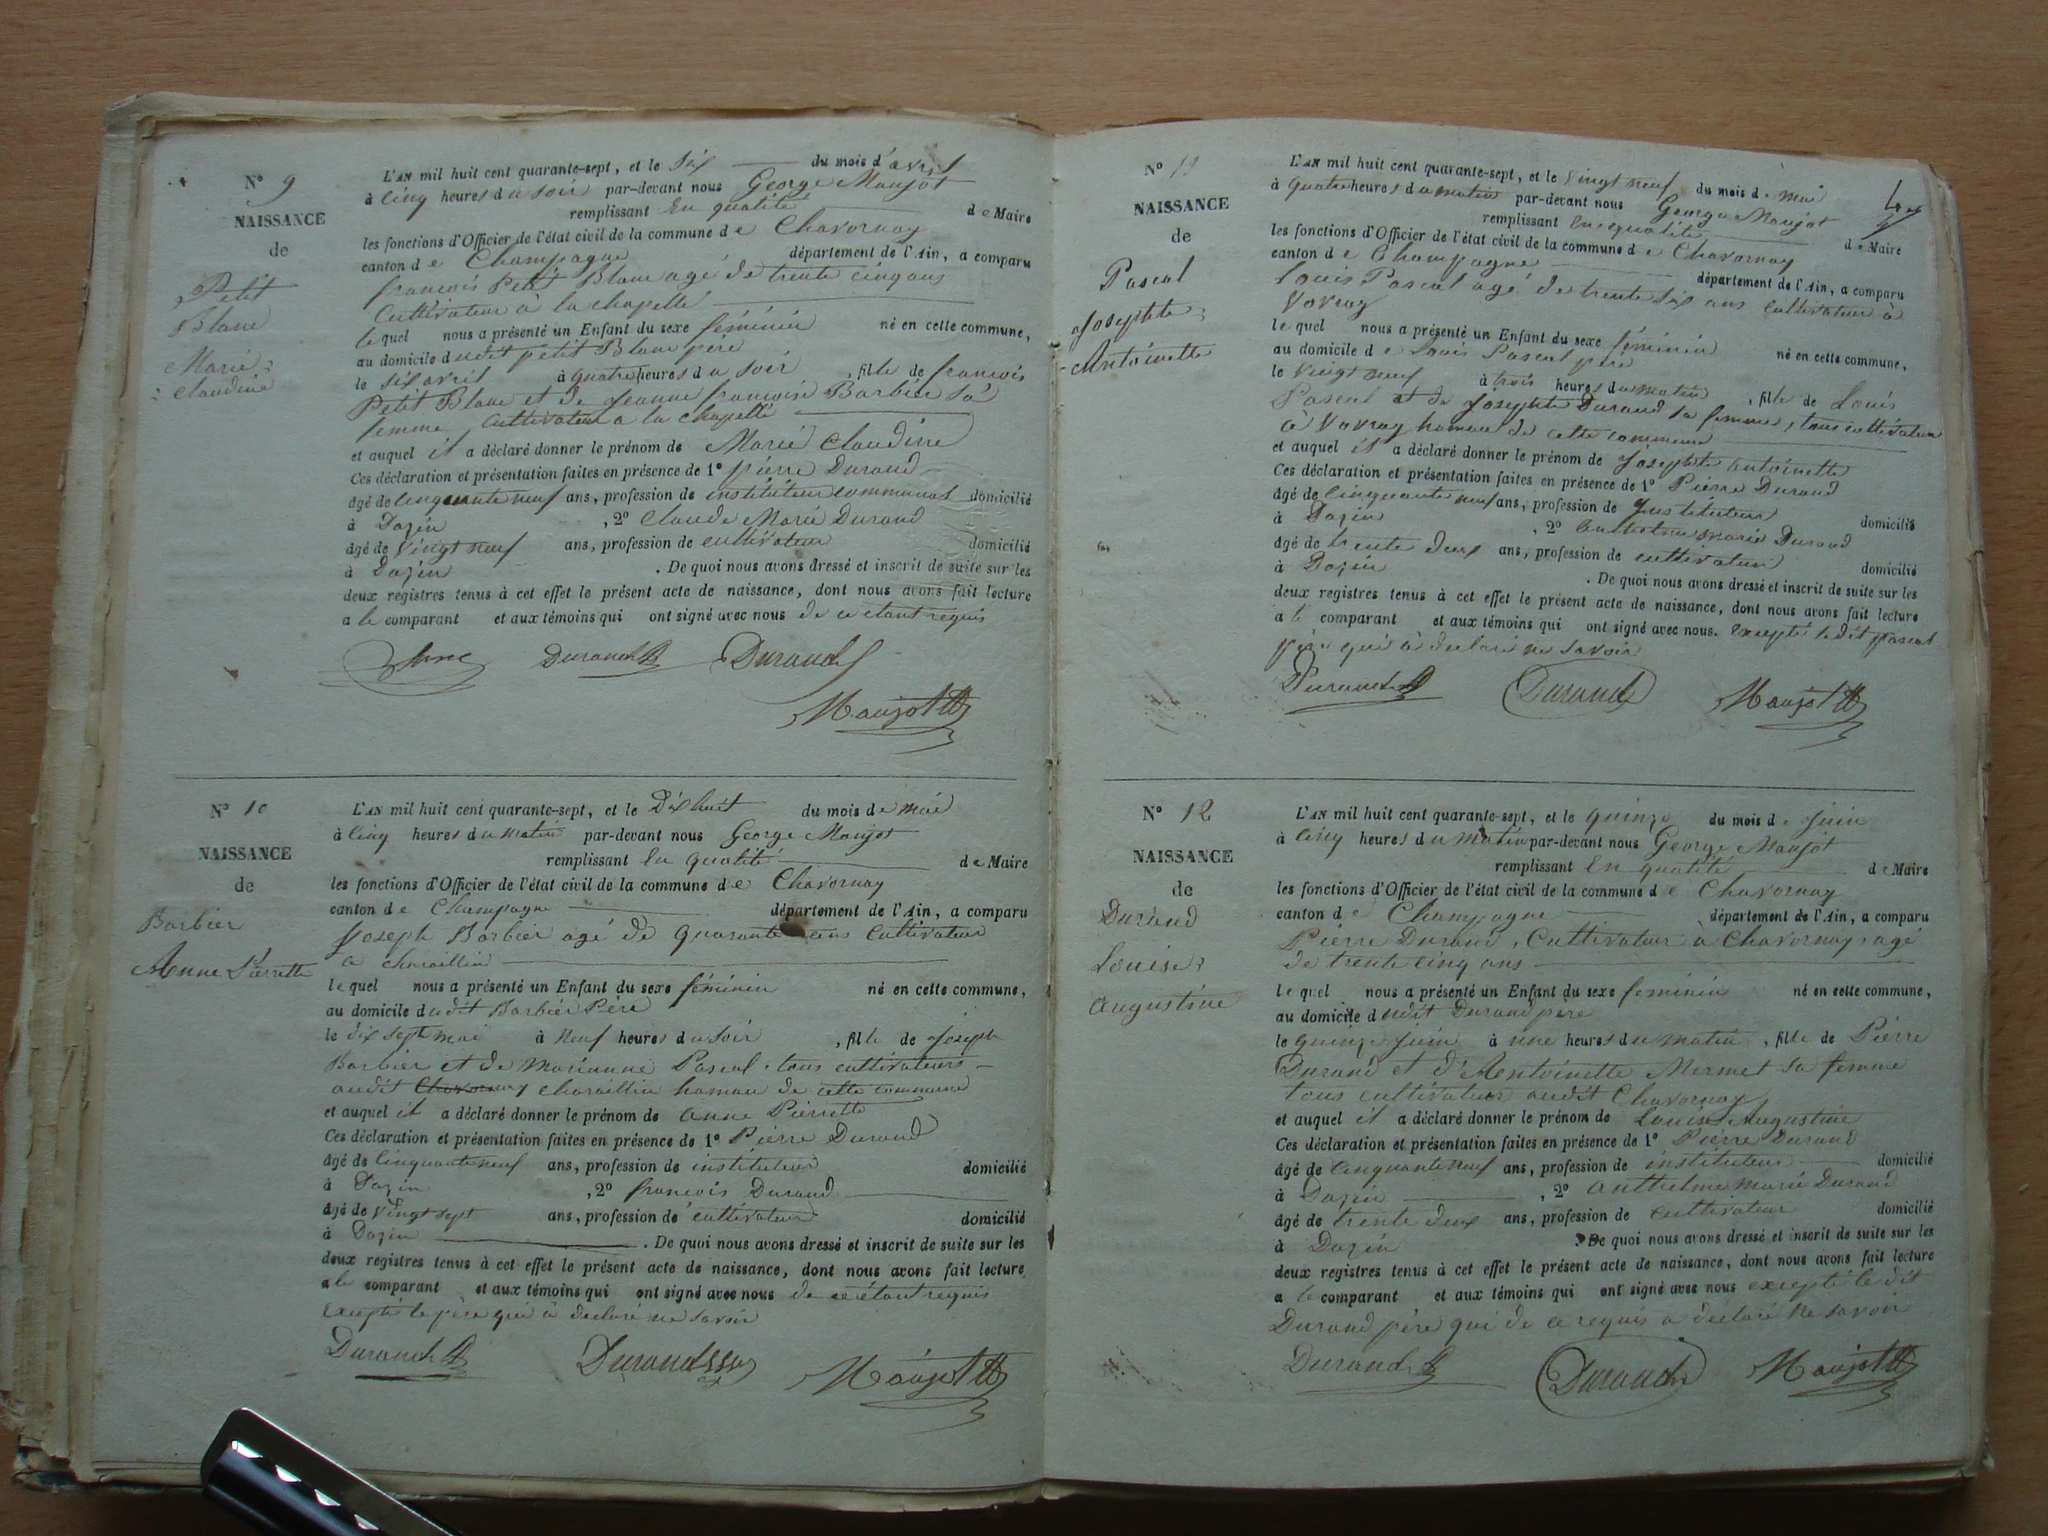 N° 9
NAISSANCE
de
Petit
Blanc
Marie
Claudine
L'AN mil huit cent quarante-sept, et le six du mois d'avril
à cinq heures du soir par-devant nous George Maujot
remplissant en qualité de Maire
les fonctions d'Officier de l'état civil de la commune de Chavornay
canton de Champagne département de l'Ain, a comparu
françois Petit Blanc agé de trente cinq ans
cultivateur à la chapelle
lequel nous a présenté un Enfant du sexe féminin né en cette commune,
au domicile dudit petit Blanc père
le six avril à quatre heures du soir, fille de francois
Petit Blanc et de Jeanne françoise Barbier sa
femme cultivateur a la chapelle
et auquel il a déclaré donner le prénom de Marie Claudine
Ces déclaration et présentation faites en présence de 1° pierre Durand
âgé de cinquante neuf ans, profession de instituteur communal domicilié
à Dazin , 2° Claude Marie Durand
âgé de vingt neuf ans, profession de cultivateur domicilié
à Dazin . De quoi nous avons dressé et inscrit de suite sur les
deux registres tenus à cet effet le présent acte de naissance, dont nous avons fait lecture
a le comparant et aux témoins qui ont signé avec nous de ce etant requis
Durand Durand
Maujot
N° 10
NAISSANCE
de
Barbier
Anne Pierrette
L'AN mil huit cent quarante-sept, et le Dix huit du mois de mai
à cinq heures du matin par-devant nous George Maujot
remplissant en qualité de Maire
les fonctions d'Officier de l'état civil de la commune de Chavornay
canton de Champagne département de l'Ain, a comparu
Joseph Barbier agé de quarante ans cultivateur
a charaillin
lequel nous a présenté un Enfant du sexe féminin né en cette commune,
au domicile dudit Barbier Père
le dix sept mai à neuf heures du soir , fille de Joseph
Barbier et de Marianne Pascal tous cultivateurs
audit Chavornay charaillin hameau de cette commune
et auquel il a déclaré donner le prénom de anne Pierrette
Ces déclaration et présentation faites en présence de 1° Pierre Durand
âgé de cinquante neuf ans, profession de instituteur domicilié
à Dazin , 2° françois Durand
âgé de vingt sept ans, profession de cultivateur domicilié
à Dazin . De quoi nous avons dressé et inscrit de suite sur les
deux registres tenus à cet effet le présent acte de naissance, dont nous avons fait lecture
a le comparant et aux témoins qui ont signé avec nous de ce étant requis
excepté le père qui à déclaré ne savoir
Durand Durand Maujot
N° 11
NAISSANCE
de
Pascal
Josephte
Antoinette
L'AN mil huit cent quarante-sept, et le vingt neuf du mois de mai
à quatre heures du matin par-devant nous George Maujot
remplissant en qualité de Maire
les fonctions d'Officier de l'état civil de la commune de Chavornay
canton de Champagne département de l'Ain, a comparu
Louis Pascal agé de trente six ans cultivateur à
Vovray
lequel nous a présenté un Enfant du sexe féminin né en cette commune,
au domicile de Louis Pascal père
le vingt neuf à trois heures du matin , fille de Louis
Pascal et de Josephte Durand sa femme, tous cultivateur
à Vovray hameau de cette commune
et auquel il a déclaré donner le prénom de Josephte antoinette
Ces déclaration et présentation faites en présence de 1° Pierre Durand
âgé de cinquante neuf ans, profession de Instituteur domicilié
à Dazin , 2° Marie Durand
âgé de trente deux ans, profession de cultivateur domicilié
à Dazin . De quoi nous avons dressé et inscrit de suite sur les
deux registres tenus à cet effet le présent acte de naissance, dont nous avons fait lecture
a le comparant et aux témoins qui ont signé avec nous. excepté le dit pascal
père qui à déclaré ne savoir
Durand Durand Maujot
N° 12
NAISSANCE
de
Durand
Louise
Augustine
L'AN mil huit cent quarante-sept, et le quinze du mois de juin
à cinq heures du matin par-devant nous George Maujot
remplissant en qualité de Maire
les fonctions d'Officier de l'état civil de la commune de Chavornay
canton de Champagne département de l'Ain, a comparu
Pierre Durand, cultivateur à Chavornay, agé
de trente cinq ans
lequel nous a présenté un Enfant du sexe feminin né en cette commune,
au domicile dudit Durand père
le quinze juin à une heures du matin , fille de Pierre
Durand et d'Antoinette Mermet sa femme
tous cultivateur audit Chavornay
et auquel il a déclaré donner le prénom de Louise Augustine
Ces déclaration et présentation faites en présence de 1° Pierre Durand
âgé de cinquante neuf ans, profession de instituteur domicilié
à Dazin , 2° anthelme Marie Durand
âgé de trente deux ans, profession de cultivateur domicilié
à Dazin . De quoi nous avons dressé et inscrit de suite sur les
deux registres tenus à cet effet le présent acte de naissance, dont nous avons fait lecture
a le comparant et aux témoins qui ont signé avec nous excepté le dit
Durand père qui de ce requis a déclaré ne savoir
Durand Durand Maujot